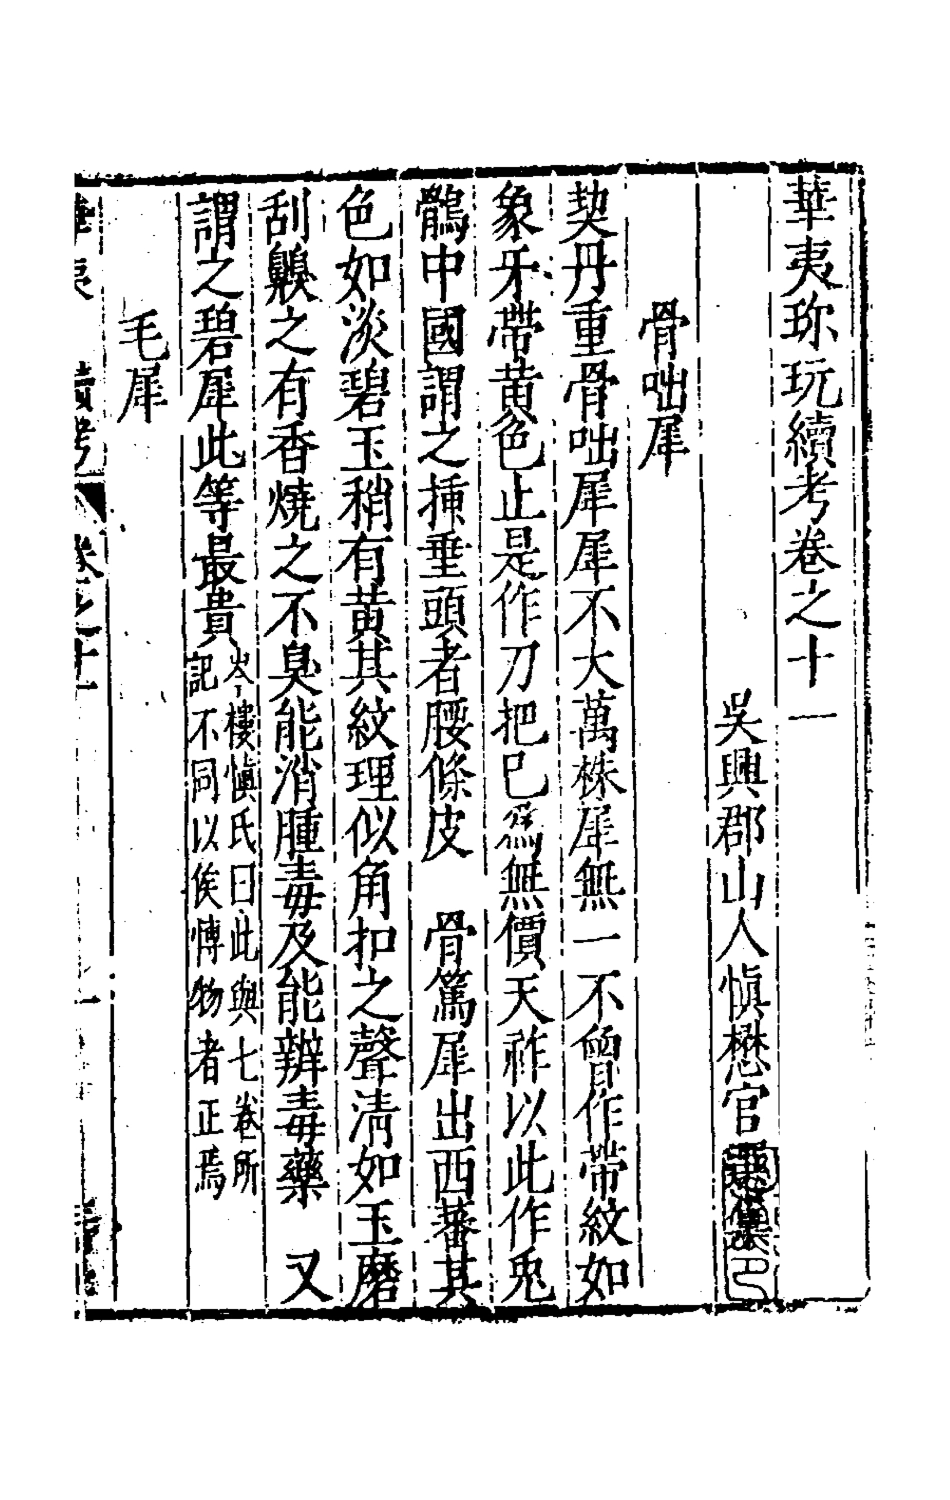 華夷珎玩續考卷之十一
吳興郡山人愼懋官
骨咄犀
契丹重骨咄犀犀不大萬株犀無一不曾作帶紋如
象牙帶黄色止是作刀把已爲無價天祚以此作兎
鶻中國謂之揷垂頭者腰條皮　骨篤犀出西蕃其
色如淡碧玉稍有黄其紋理似角扣之聲淸如玉磨
刮齅之有香燒之不臭能消腫毒及能辨毒藥　又
謂之碧犀此等最貴
岑樓愼氏曰此與七卷所
記不同以俟愽物者正焉
毛犀
華夷　續考　卷之十一　一